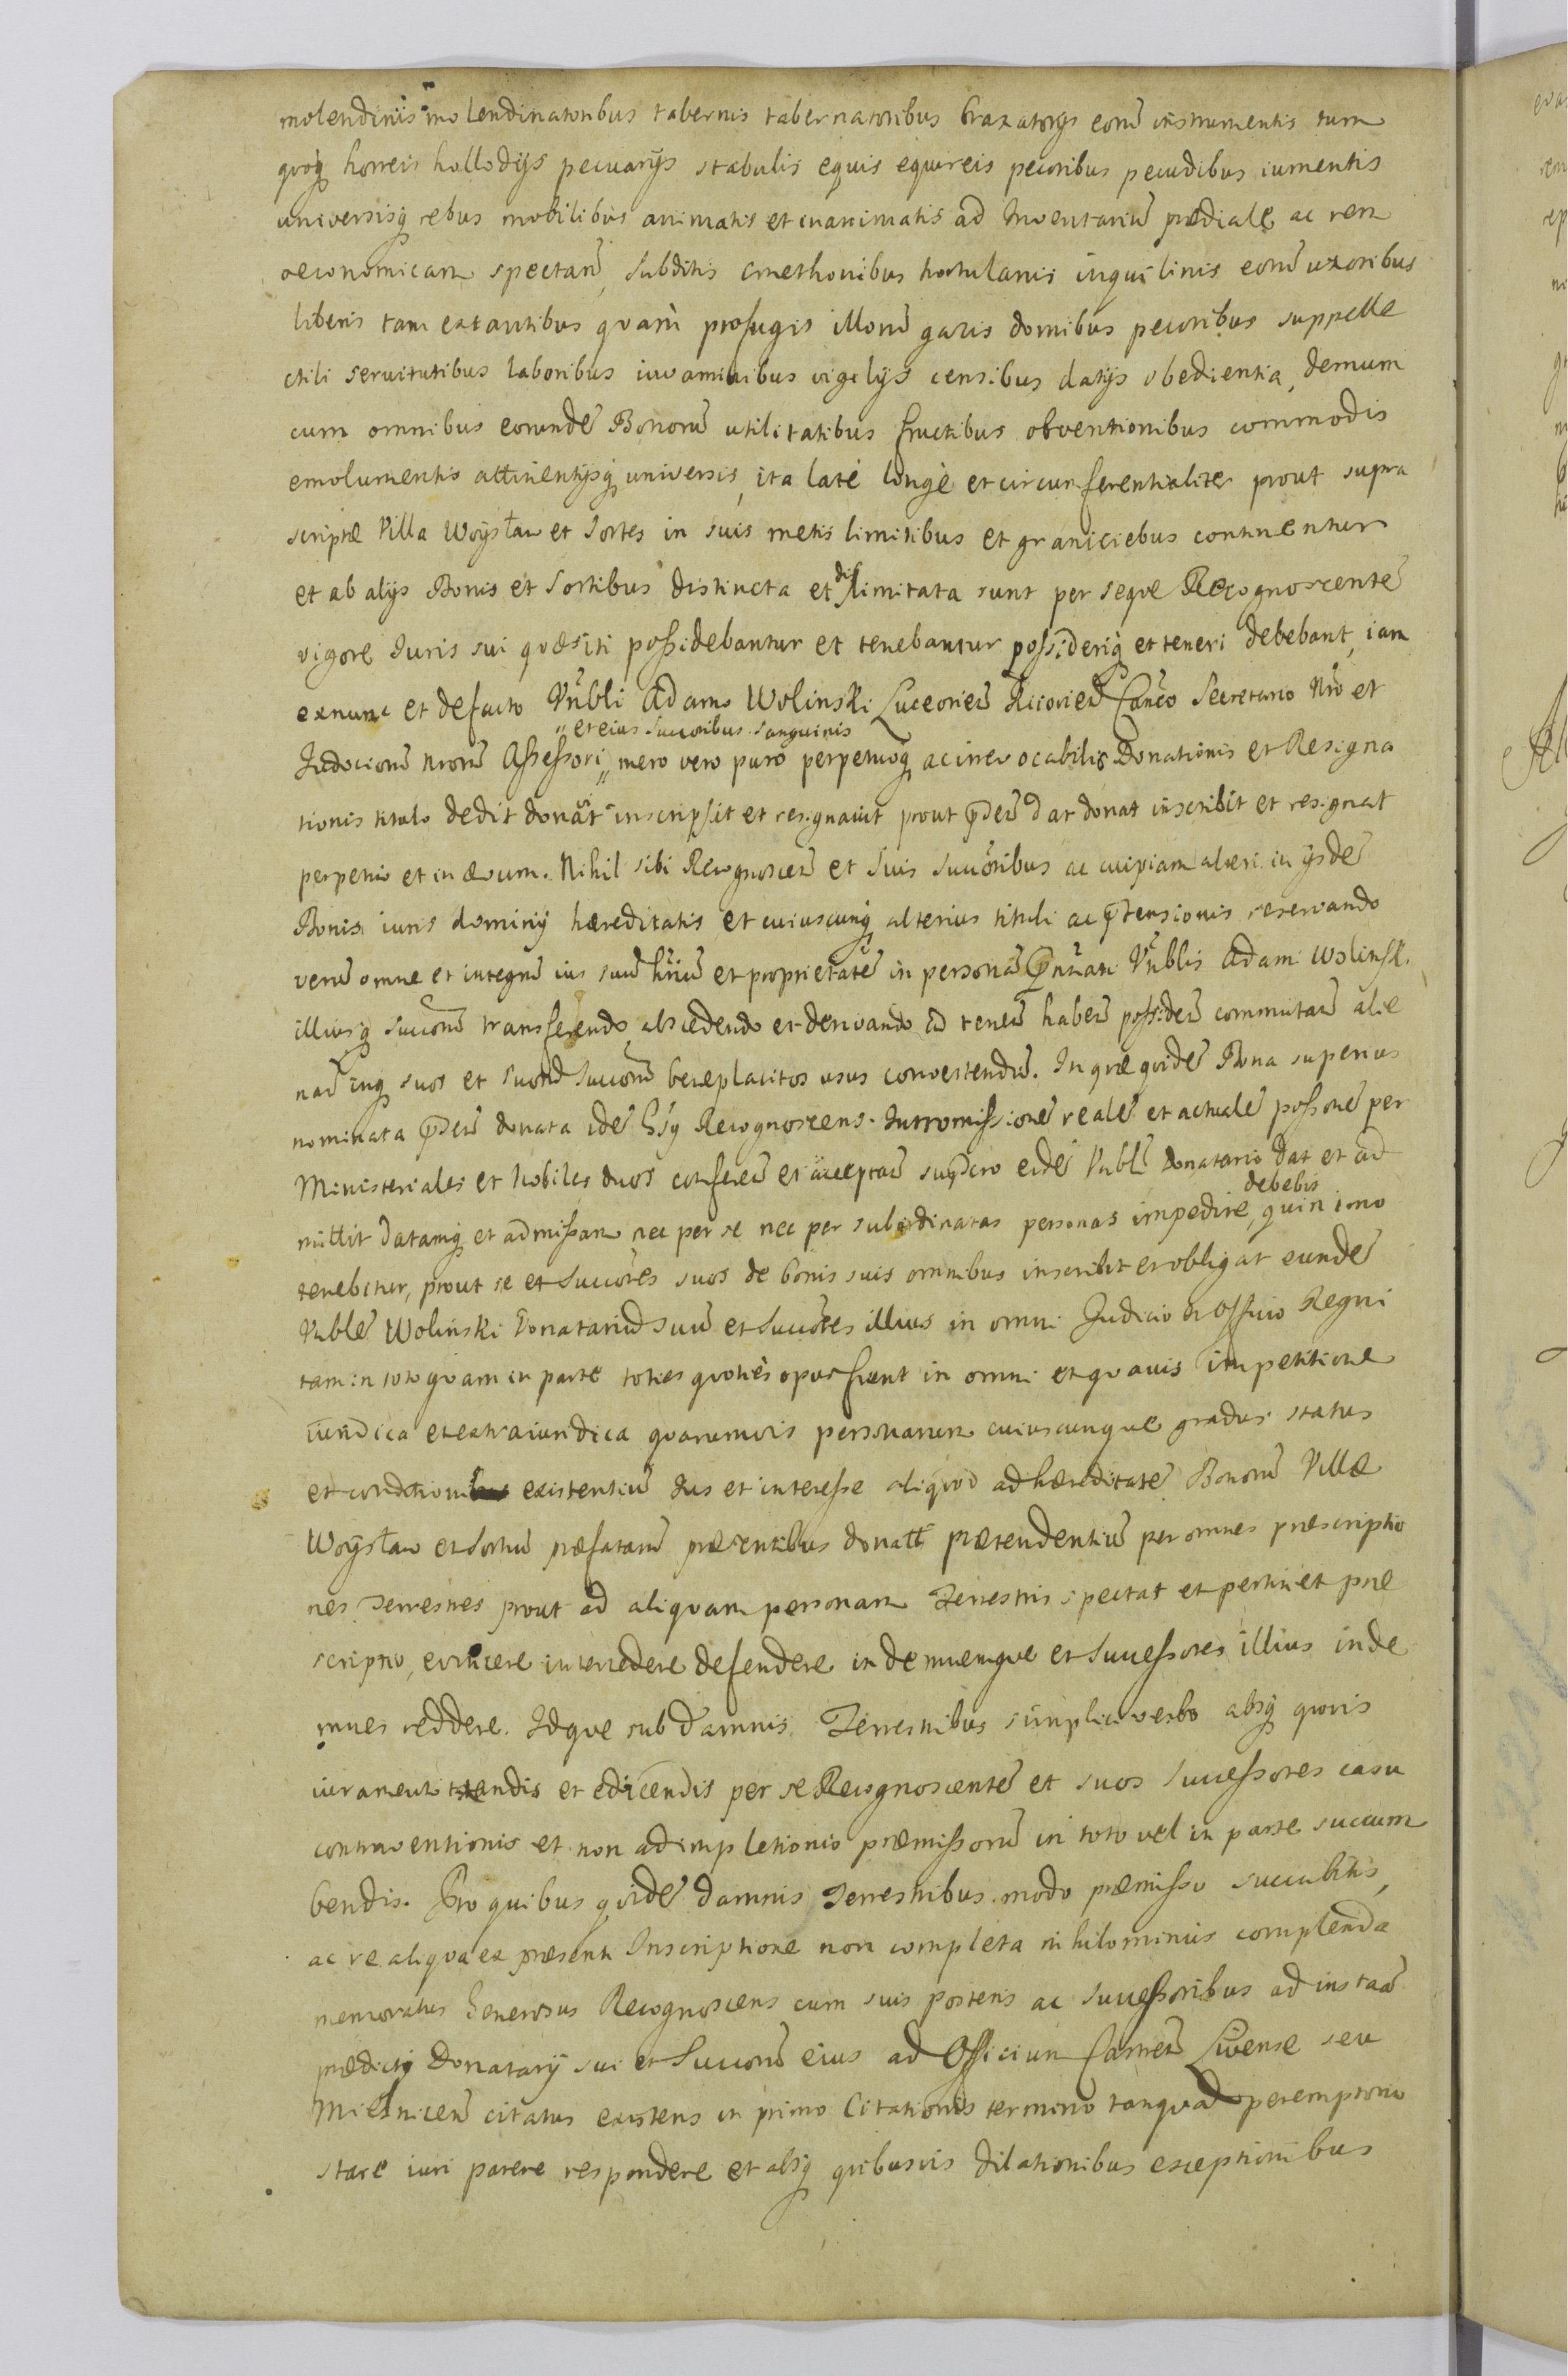 molendinis molendinatoribus tabernis tabernatoribus braxatorijs eorũ instrumentis tum
quoq horreis hollodijs pecuarijs stabulis equis equireis pecoribus pecudibus iumentis
universisq rebus mobilibus animatis et inanimatis ad Inventariũ prædiale ac rem
oeconomicam spectañ, subditis cmethonibus hortulanis inquilinis eorũ uxoribus
liberis tam extantibus quam profugis illorũ gazis domibus pecoribus suppelle
ctili servitutibus laboribus iuvaminibus vigilijs censibus datijs obedientia, demum
cum omnibus eorundẽ Bonorũ utilitatibus fructibus obventionibus commodis
emolumentis attinentijsq universis, ita latè longè et circumferentialiter prout supra
scriptæ Villa Woysław et Sortes in suis metis limitibus et graniciebus continentur
et ab alijs Bonis et Sortibus distincta et dislimitata sunt per seque Recognoscentẽ
vigore Iuris sui quæsiti possidebantur et tenebantur possideriq et teneri debebant, iam
exnunc et defacto Vrbli Adamo Wolinski Luceorień Kiiovień Canco Secretario Nro et
"et eius succoribus sanguinis
Iudiciorũ nrorũ Assessori " mero vero puro perpetuoq ac irrevocabilis Donationis et Resigna
tionis titulo dedit donat inscripsit et resignavit prout ꝑdeũ dat donat inscribit et resignat
perpetuo et in ævum. Nihil sibi Recognosceñ et Suis Succoribus ac cuipiam alteri in ijsdẽ
Bonis iuris dominij hæreditatis et cuiuscunq alterius tituli ac ꝑtensionis reservando
verũ omne et integrũ ius suũ hriũ et proprietatẽ in personã Vrblis Adami Wolinsk.
illiusq Succorũ transferendo abscedendo et derivando ad teneñ habeñ possideñ commutañ alie
nañ inq suos et Suorũ Succorũ beneplacitos usus convertendũ. In quæ quidẽ Bona superius
nominata ꝑdeũ donata idẽ Gsy Recognoscens. Intromissionẽ realẽ et actualẽ possonẽ per
Ministeriales et Nobiles duos conferen et acceptañ eidẽ Vrbli Donatario dat et ad
debebit
mittit datamq et admissam nec per se nec per subordinatas personas impedire, quin imo
tenebitur, prout se et Succores suos de bonis suis omnibus inscribit et obligat eundẽ
Vrblẽ Wolinski Donatariũ suũ et Succores illius in omni Judicio et Officio Regni
tam in toto quam in parte toties quoties opus fuerit in omni et quavis impetitione
iuridica et extraiuridica quarumvis personarum cuiuscunque gradus status
et conditionis existentiũ Ius et interesse aliquod ad hæreditatẽ Bonorũ Villæ
Woysław et Sortiũ præfatarũ præsentibus donatt prætendentiũ per omnes præscriptio
nes Terrestres prout ad aliquam personam Terrestris spectat et pertinet præ
scriptio, evincere intercedere defendere indemnemque et Successores illius inde
mnes reddere. Idque sub damnis Terrestribus simplici verbo absq quovis
iurament tandis et edicendis per se Recognoscentẽ et suos Successores casu
contraventionis et non adimpletionis præmissorũ in toto vel in parte succum
bendis. Pro quibus quidẽ damnis Terrestribus modo præmisso succubitis,
ac re aliqua ex præsenti Inscriptione non completa nihilominus complenda
memoratus Generosus Recognoscens cum suis posteris ac Successoribus ad instañ
prædicti Donatarij sui et Succorũ eius ad Officium Castreñ Livense seu
Mielniceñ citatus existens in primo Citationis termino tanquã peremptorio
stare iuri parere respondere et absq quibusvis dilationibus exceptionibus